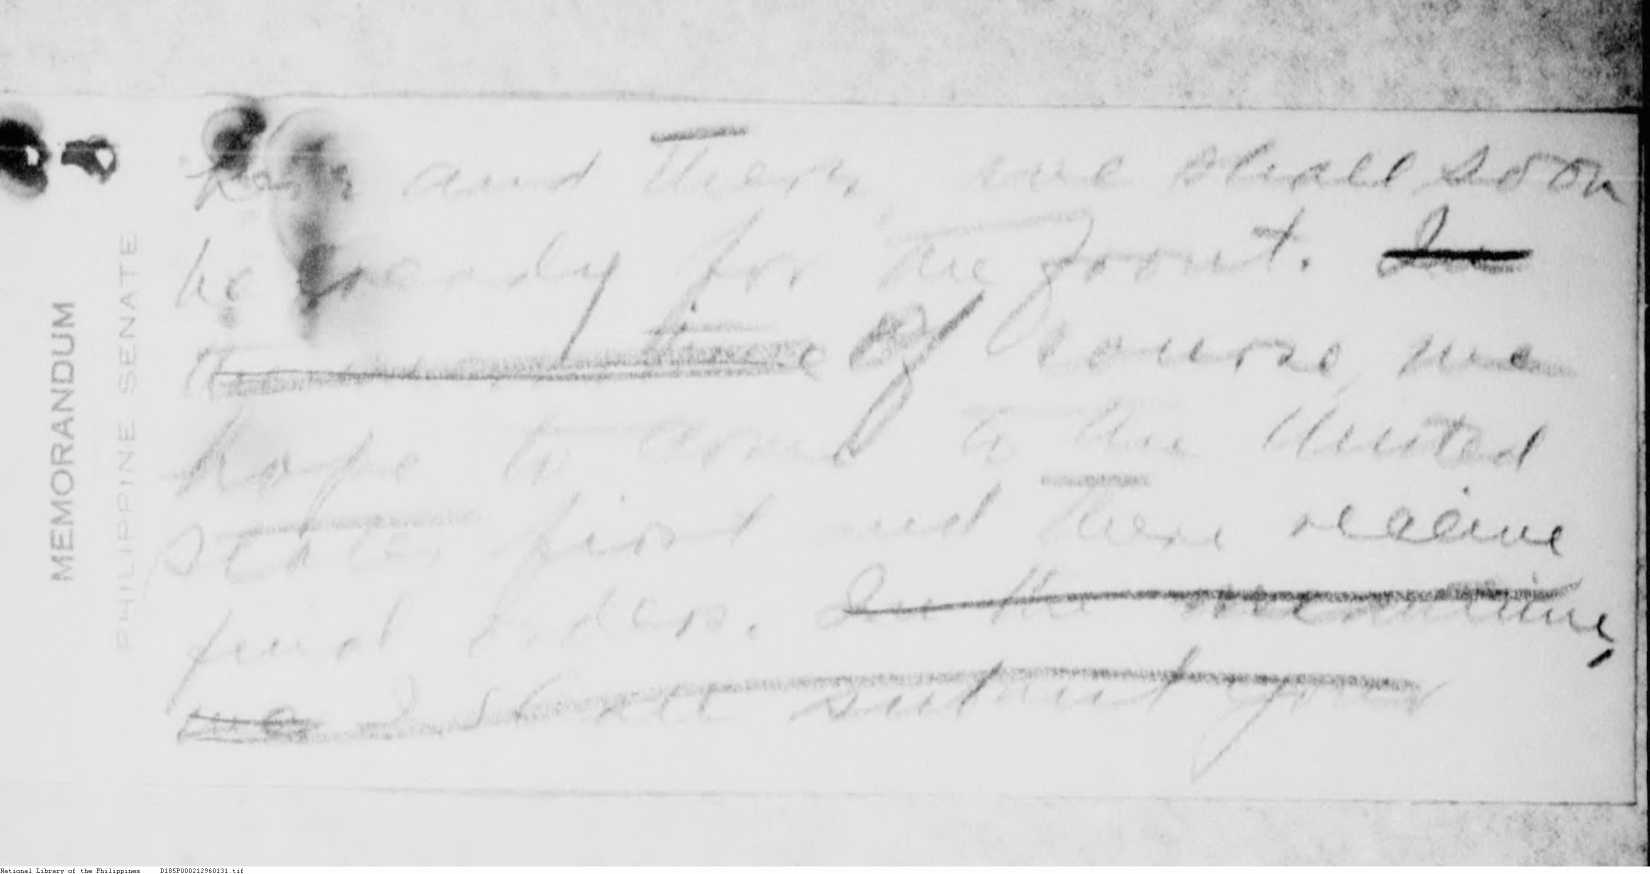 MEMORANDUM
PHILIPPINE SENATE
here and there, we shall soon
be ready for the front. In
the mean time Of course, we
hope to come to the United
States first and there receive
final orders. In the meantime,
we I shall submit your
National Library of the Philippines D185P000212960131.tif